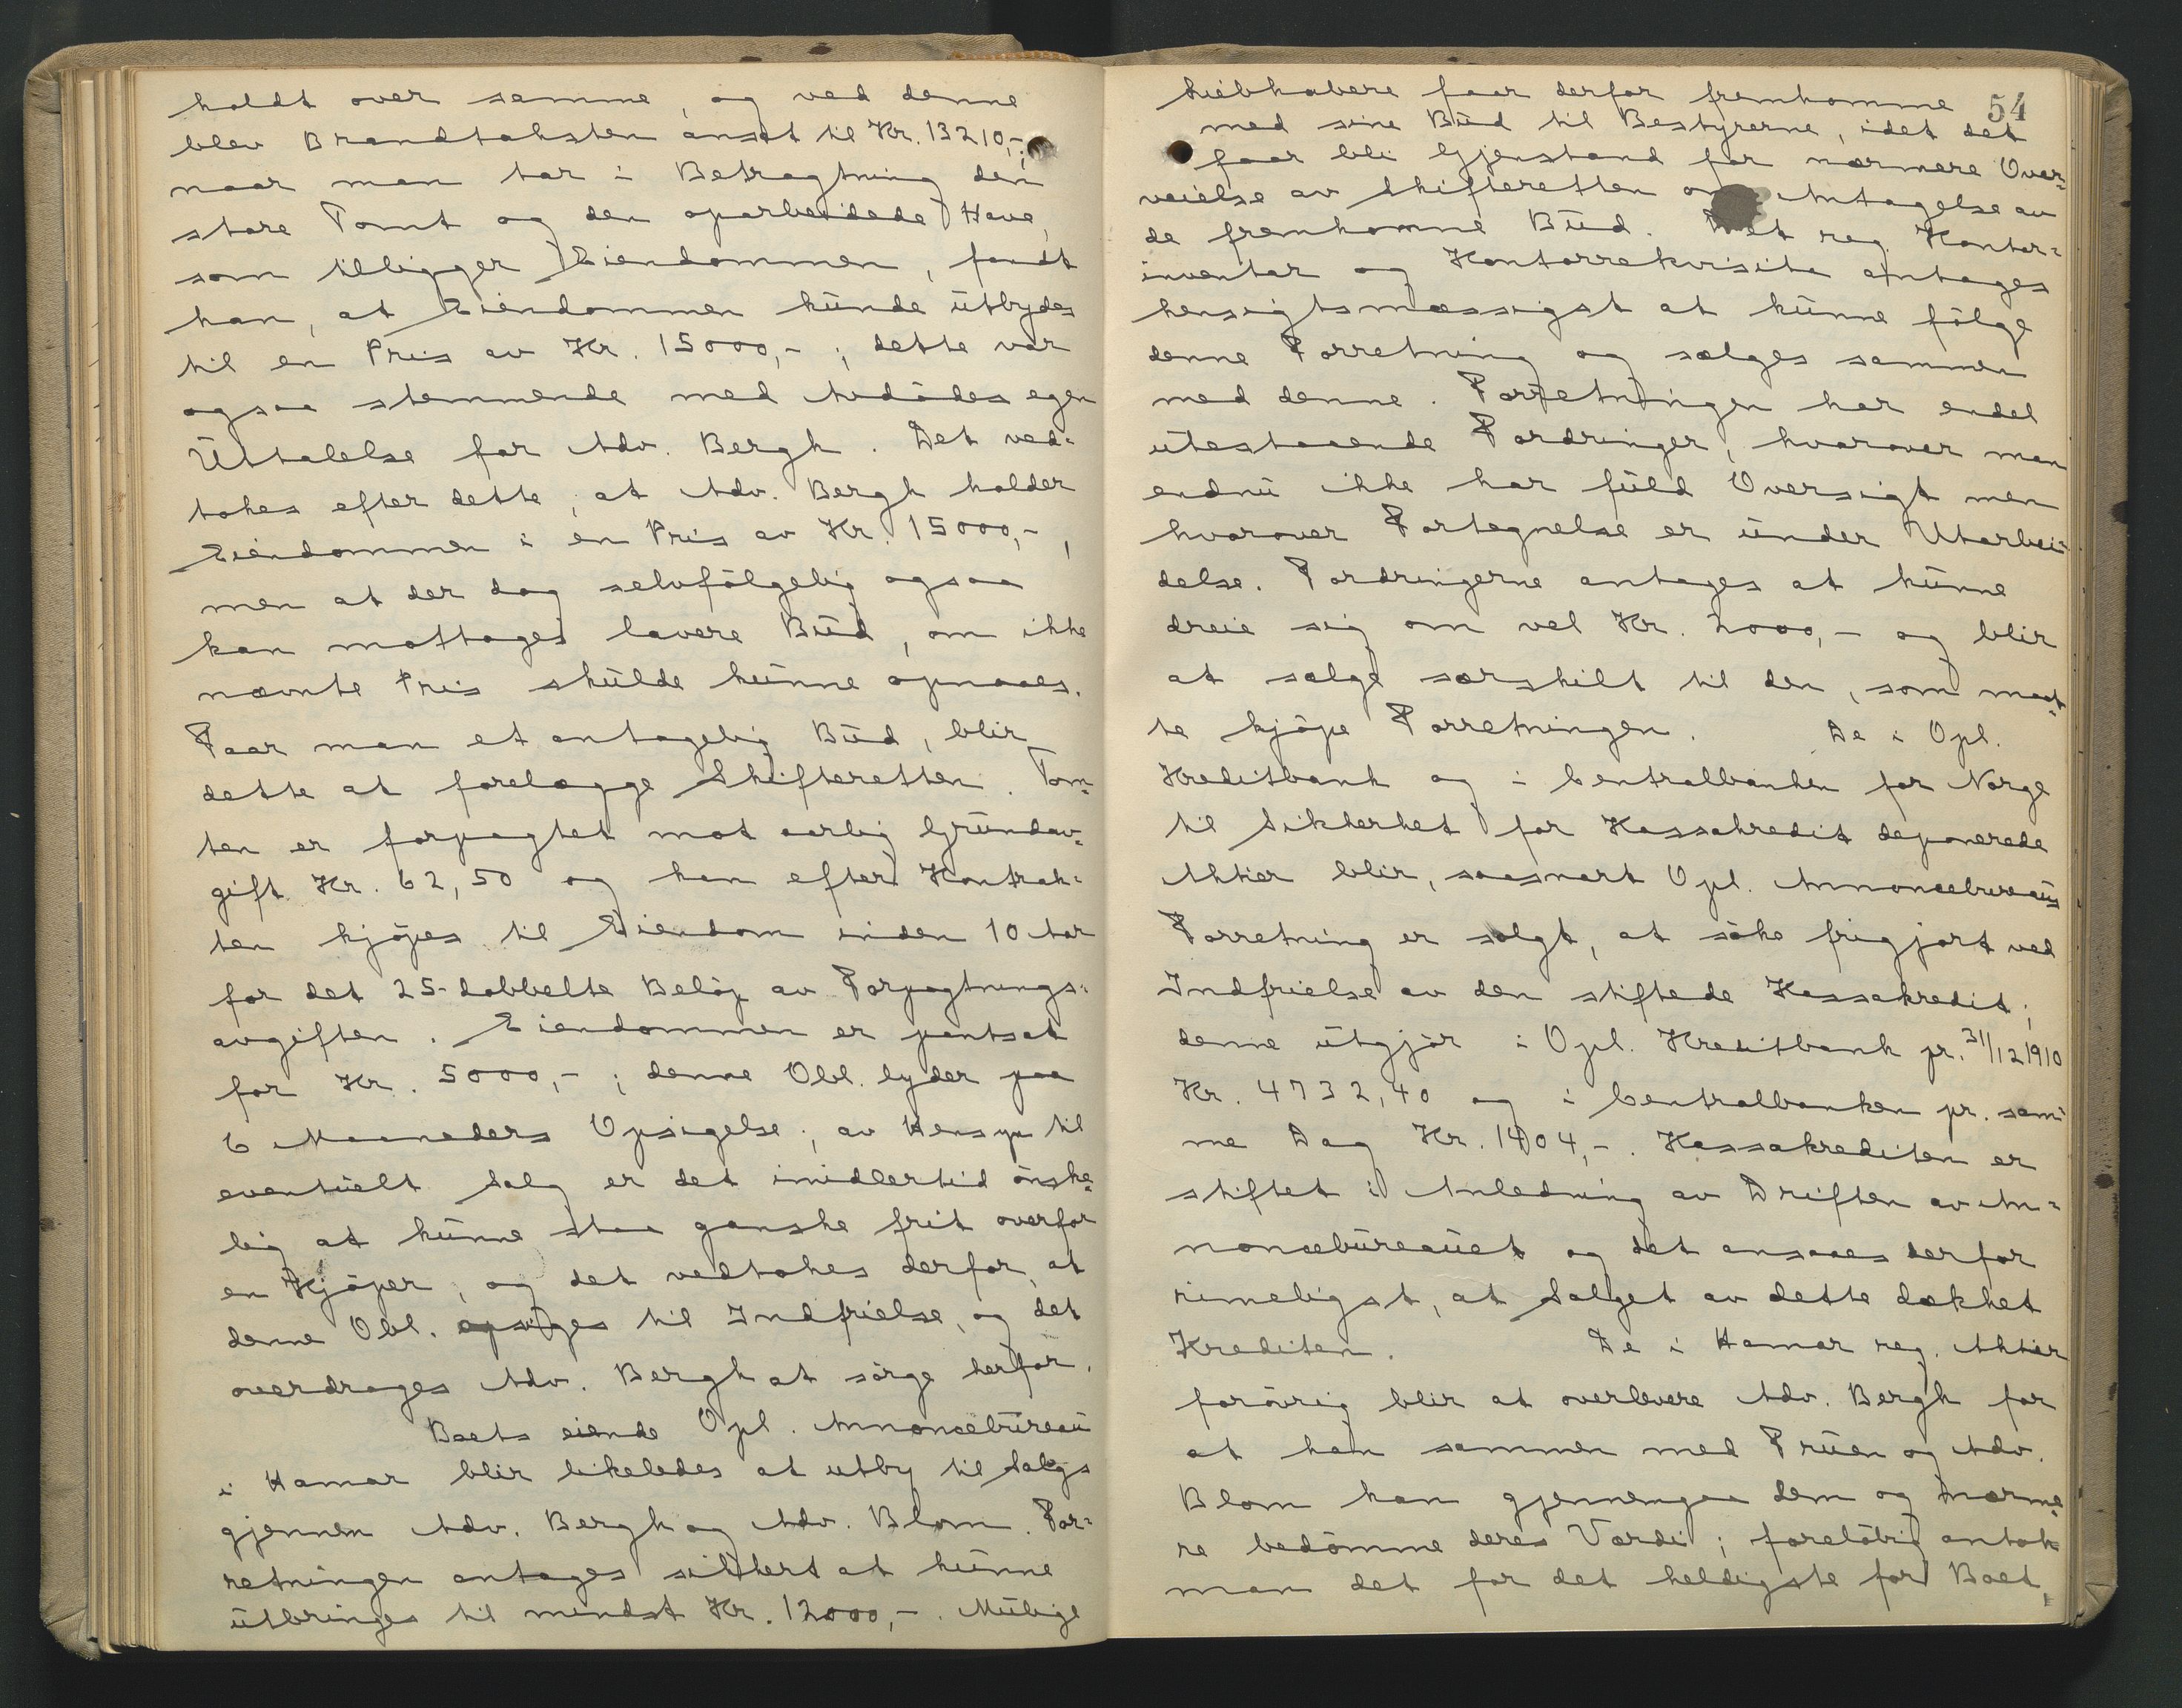 holdt over samme, og ved denne
blev Brandtaksten ansat til Kr. 13210,-;
naar man tar i Betragtning den
store Tomt og den oparbeidede Have,
som tilligger Eiendommen, fandt
han, at Eiendommen kunde utbydes
til en Pris av Kr. 15000,-; dette var
ogsaa stemmende med Avdödes egen
Uttalelse for Adv. Bergh. Det ved=
tokes efter dette, at Adv. Bergh holder
Eiendommen i en Pris av Kr. 15000,-,
men at der dog selvfölgelig ogsaa
kan mottages lavere Bud, om ikke
nævnte Pris skulde kunne opnaaes.
Faar man et antagelig Bud, blir
dette at forelægge Skifteretten. Tom=
ten er forpagtet mot aarlig Grundav=
gift Kr. 62,50 og kan efter Kontrak=
ten kjöpes til Eiendom inden 10 Aar
for det 25-dobbelte Belöp av Forpagtnings=
avgiften. Eiendommen er pantsat
for Kr. 5000,-; denne Obl. lyder paa
6 Maaneders Opsigelse; av Hensyn til
eventuelt Salg er det imidlertid önske=
lig at kunne staa ganske frit overfor
en Kjöper, og det vedtokes derfor, at
denne Obl. opsiges til Indfrielse, og det
overdrages Adv. Bergh at sörge herfor.
Boets eiende Opl. Annoncebureau
i Hamar blir likeledes at utby til Salgs
gjennem Adv. Bergh og Adv. Blom. For=
retningen antages sikkert at kunne
utbringes til mindst Kr. 12000,-. Mulige
54
Liebhabere faar derfor fremkomme
med sine Bud til Bestyrerne, idet det
faar bli Gjenstand for nærmere Over=
veielse av Skifteretten om Antagelse av
de fremkomne Bud. Det reg. Kontor=
inventar og Kontorrekvisita antages
hensigtsmæssigst at kunne fölge
denne Forretning og sælges sammen
med denne. Forretningen har endel
utestaaende Fordringer, hvorover man
endnu ikke har fuld Oversigt men
hvorover Fortegnelse er under Utarbei=
delse. Fordringerne antages at kunne
dreie sig om vel Kr. 2000,- og blir
at sælge særskilt til den, som maat=
te kjöpe Forretningen. De i Opl.
Kreditbank og i Centralbanken for Norge
til Sikkerhet for Kassakredit deponerede
Aktier blir, saasnart Opl. Annoncebureaus
Forretning er solgt, at söke frigjort ved
Indfrielse av den stiftede Kassakredit;
denne utgjör i Opl. Kreditbank pr. 31/12 1910
Kr. 4732,40 og i Centralbanken pr. sam=
me Dag Kr. 1404,-. Kassakrediten er
stiftet i Anledning av Driften av An=
noncebureauet og det ansaaes derfor
rimeligst, at Salget av dette dækket
Krediten. De i Hamar reg. Aktier
forövrig blir at overlevere Adv. Bergh for
at han sammen med Fruen og Adv.
Blom kan gjennemgaa dem og nærme=
re bedömme deres Værdi; forelöbig antok
man det for det heldigste for Boet,